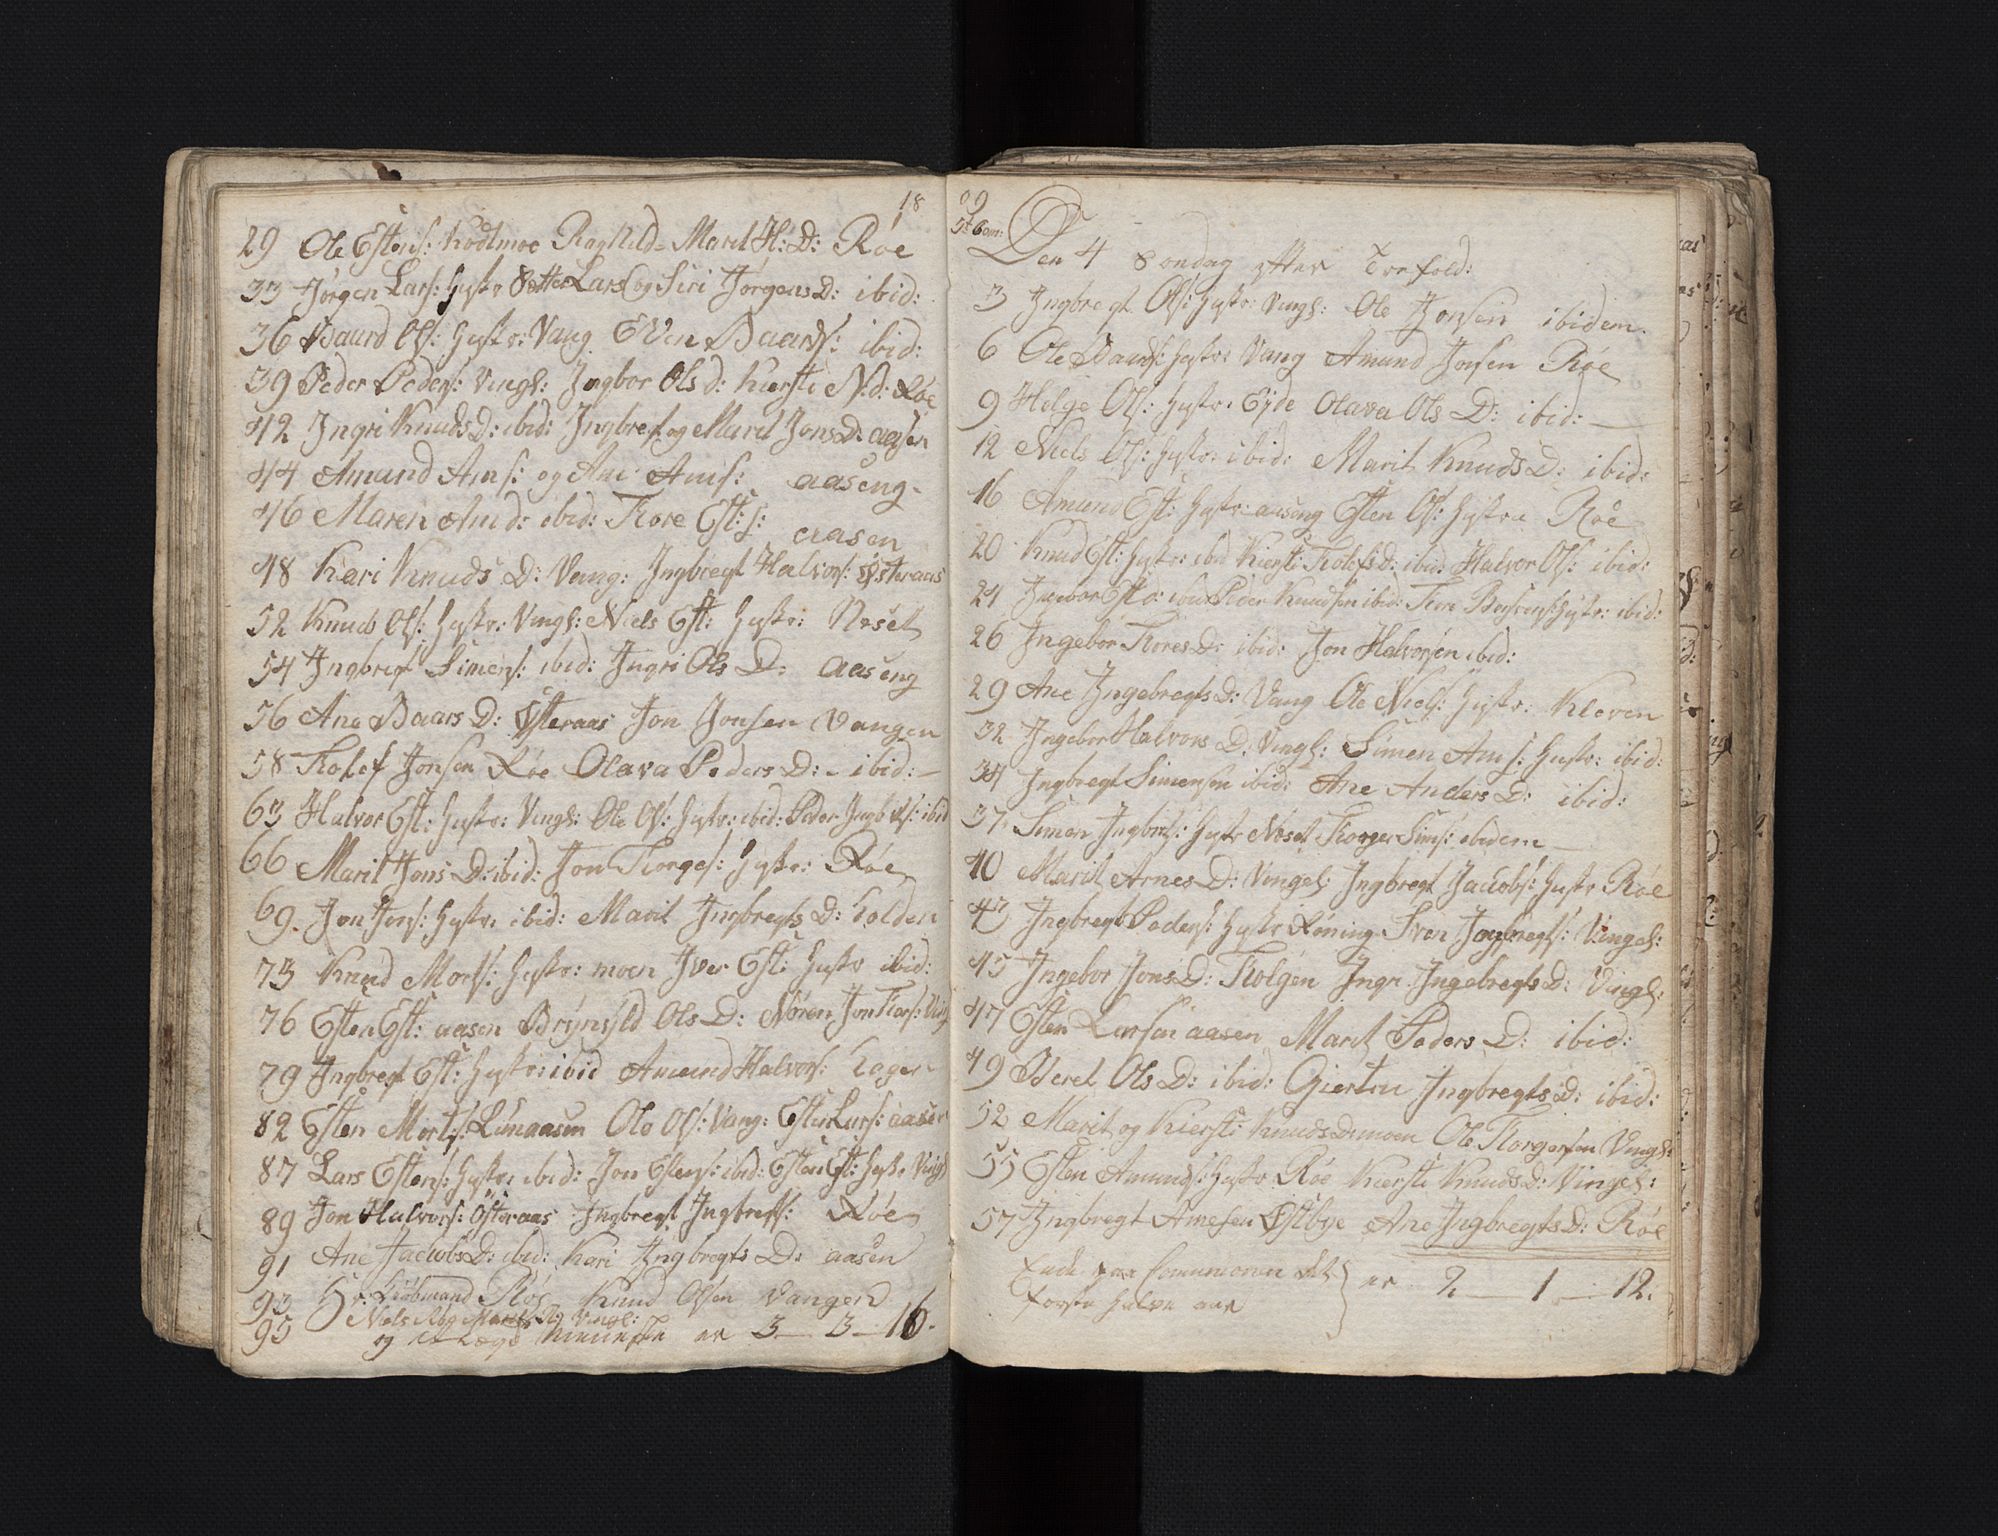 18
29 Ole Estens: Kødtmoe Raghild Marit H: D: Røe
33 Jørgen Lars: Hustr: Lars og Siri JørgensD: ibid:
36 Baard Ols: Hustr: Vang Even Baards: ibid:
39 Peder Peders: Vingl: Ingbor Ols d: Kiersti N:d: Røe
42 Ingri KnudsD: ibid: Ingbregt og Marit JonsD: aasen
44 Amund Ams: og Ane Ams: aaseng
46 Maren Am d: ibid: Tore Est: s: aasen
48 Kari Knuds D: Vang: Ingbregt Halvors: Østeraas
52 Knud Ols: Hustr: Vingl: Niels Est: Hustr: Neset
54 Ingbregt Simens: ibid: Ingri Ols D: aaseng
56 Ane Baars D: Østeraas Jon Jonsen Vangen
58 Tolef Jonsen Røe Olava Peders D: ibid:
63 Halvor Est: Hustr: Vingl: Ole Ols: Hustr: ibid: Peder Ingbrs: ibid
66 Marit Jons D: ibid: Jon Torges: Hustr: Røe
69. Jon Jons: Hustr: ibid: Marit Ingbregts D: Holden
73 Knud Morts: Hustr: moen Iver Est: Hustr ibid:
76 Esten Est: aasen Brynyld Ols D: Nøren Jon Tors: Ving
79 Ingbregt Est: Hustr: ibid Amund Halvors: Hogen
82 Esten Morts: Lunaasen Ole Ols: Vang: Esten Lars: aasen
87 Lars Estens: Hustr: ibid: Jon Estens: ibid: Esten Est: Hustr Vingl
89 Jon Halvors: Østeraas Ingbregt Ingbrets: Røe
91 Ane JacobsD: ibid: Kari Ingbregts D: aasen
93 Hr: Kiøbmand Røe Knud Olsen Vangen
95 Niels Vingl:
og er 3 — 3 — 16.
99
Den 4 Søndag efter Trefold:
3 Ingbregt Ols: Hustr: Vingl: Ole Jonsen ibidem.
6 Ole Baards: Hustr: Vang Amund Jonsen Røe
9 Helge Ols: Hustr: Eide Olava Ols D: ibid:
12 Niels Ols: Hustr: ibid: Marit Knuds D: ibid:
16 Amund Est: Hustr: aaseng Esten Ols: Hustru Røe
20 Knud Est: Hustr: ibid Kiersti TolefsD: ibid: Halvor Ols: ibid:
24 Ingebor Est d: ibid Peder Knudsen ibid: Tore Hustr: ibid:
26 Ingebor Tores D: ibid: Jon Halvorsen ibid:
29 Ane Ingebregts D: Vang Ole Niels: Hustr: Kleven
32 Ingebor Halvors D: Vingl: Simen Ams: Hustr: ibid:
34 Ingbregt Simensen ibid: Ane Anders D: ibid:
37 Simen Ingbrs: Hustr Neset Torger Sims: ibidem
40 Marit Arnes D: Vingel: Ingbregt Jacobs: Hustr Røe
43 Ingbregt Peders: Hustr Røning Sven Ingbregts: Vingel:
45 Ingebor Jons D: Tolgen Ingr: Ingebregts D: Vingl:
47 Esten Larsen aasen Marit Peders D: ibid:
49 Beret Ols D: ibid: Giertru Ingbregts D: ibid:
52 Marit og Kiersti Knuds D: moen Ole Torgersen Vingl:
55 Esten Amunds: Hustr Røe Kiersti Knuds D: Vingel:
57 Ingbregt Arnesen Østbye Ane Ingbregts D: Røe
Ende paa Comunionen det
første halve aar } er 2 — 1 — 12.